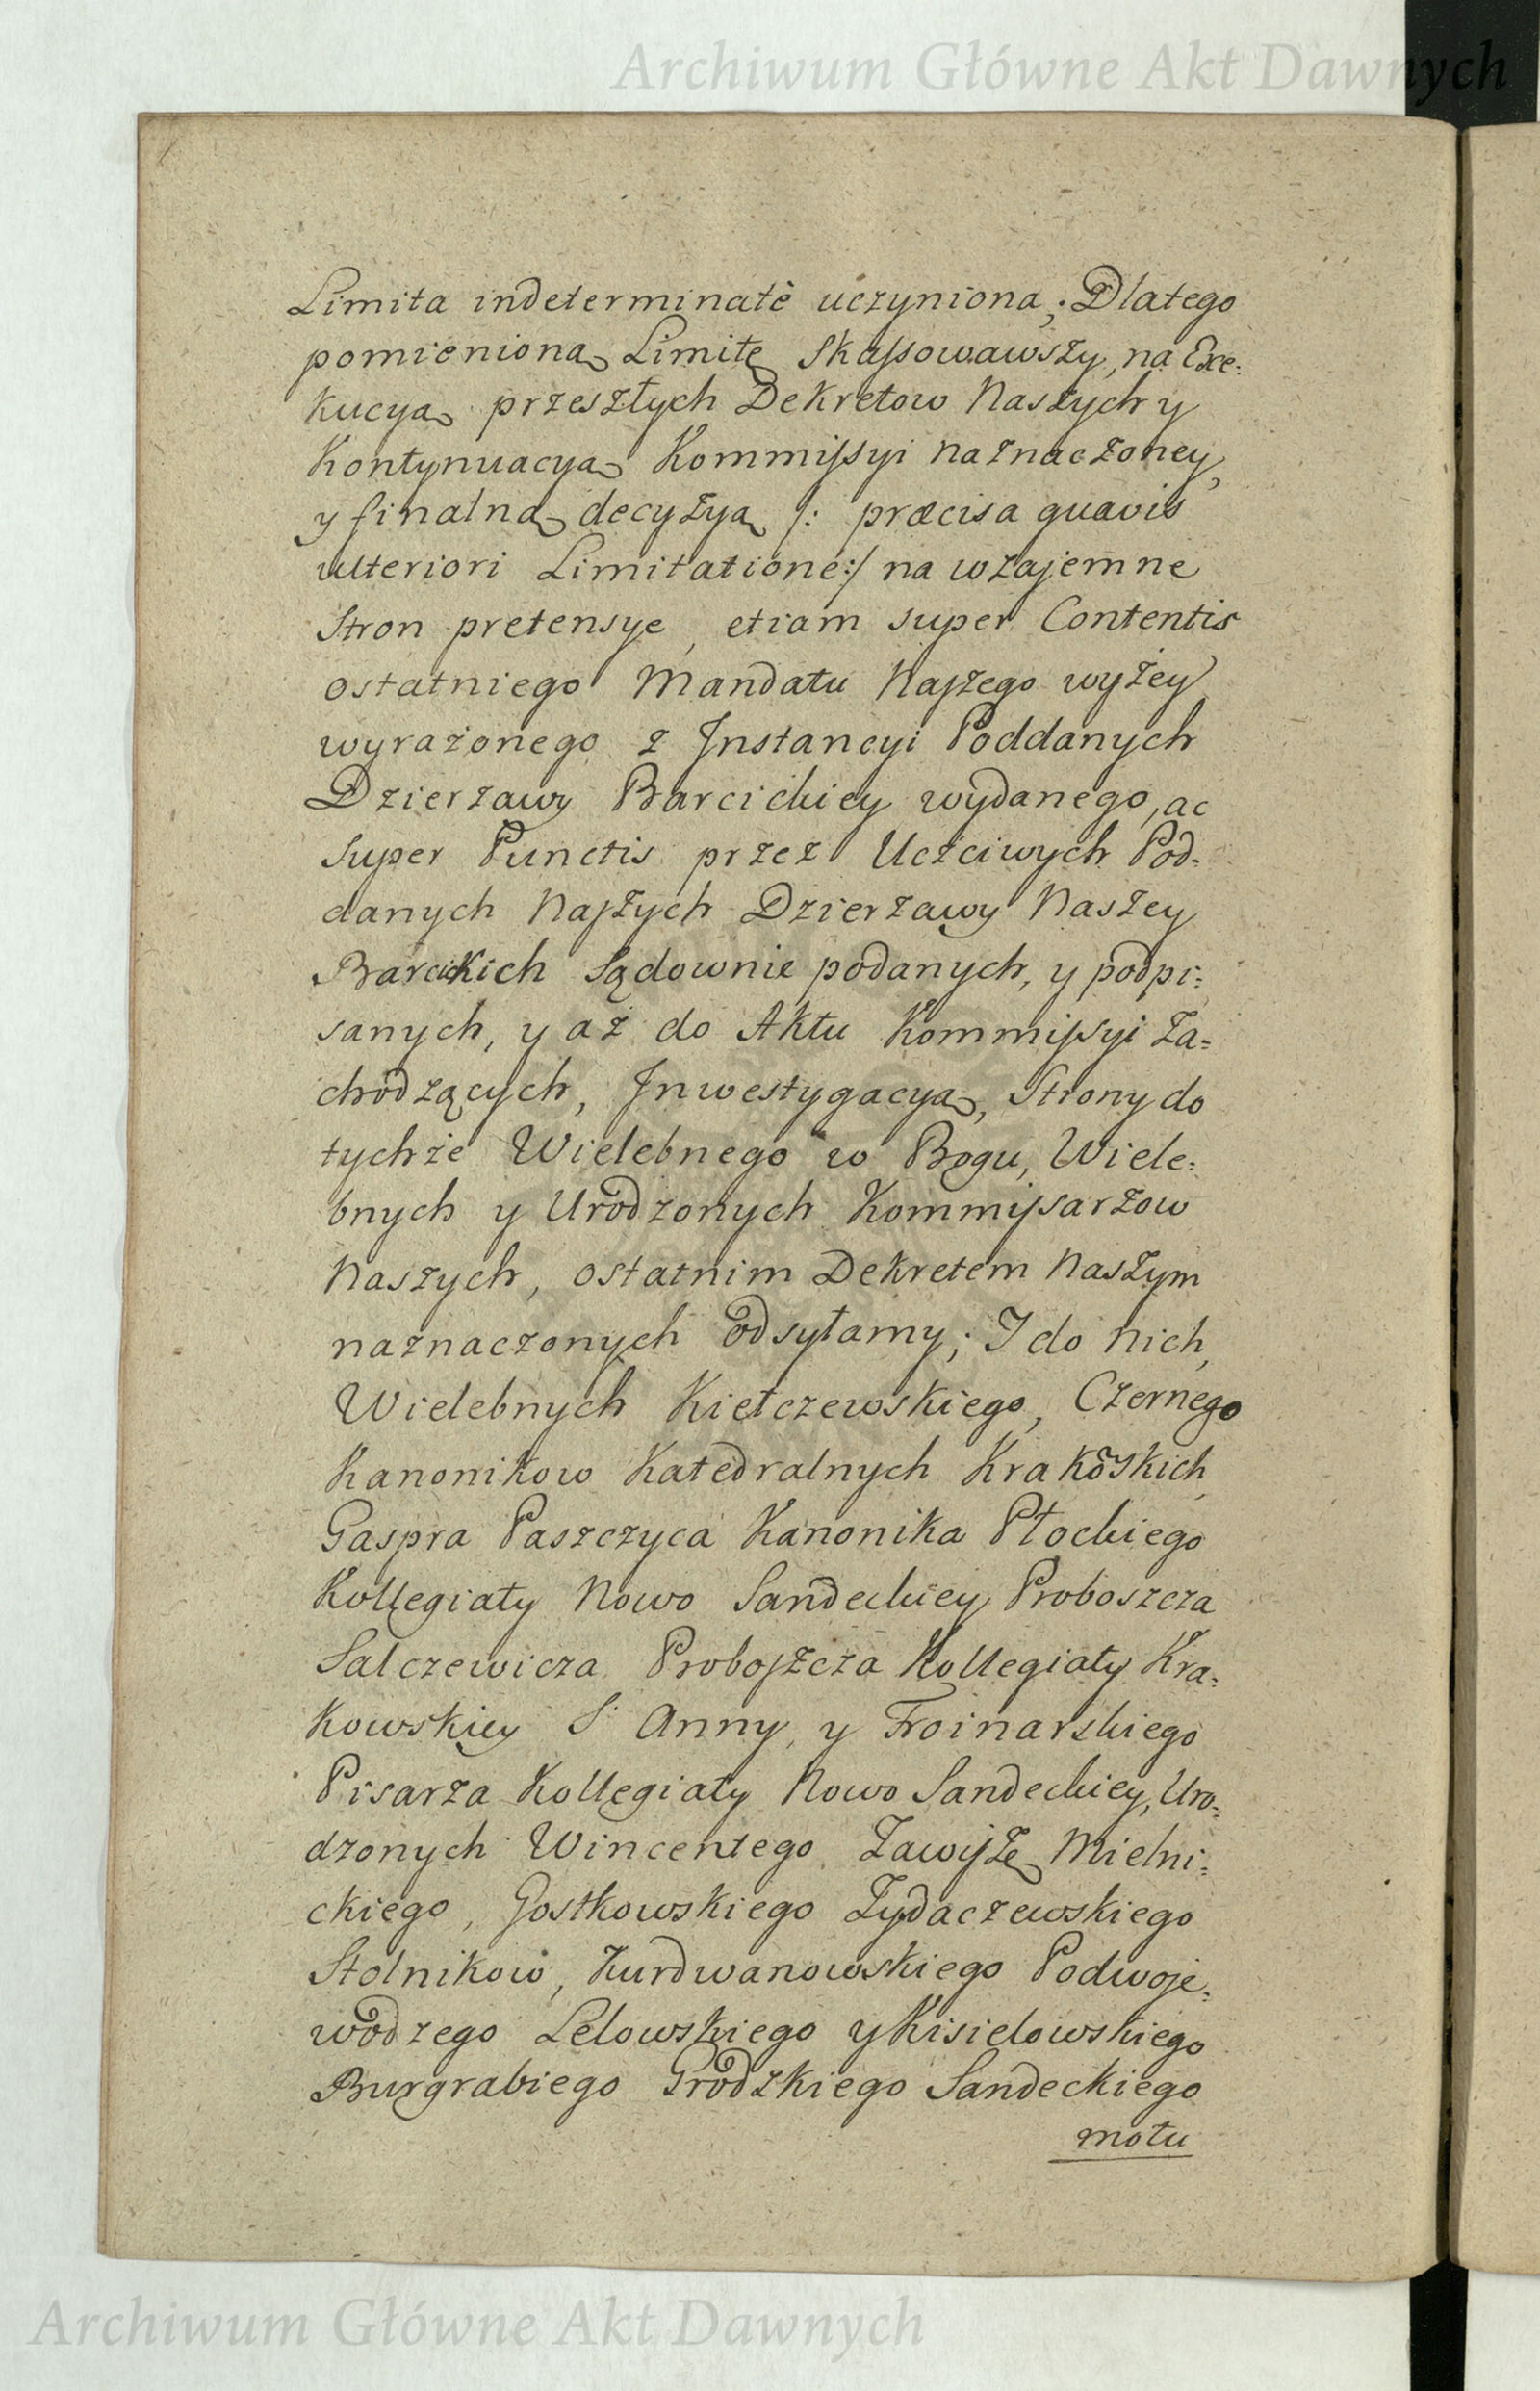 Archiwum Główne Akt Dawnych
Limita indeterminatè uczyniona; Dlatego
pomienioną Limitę skassowawszy, na Exe-
kucyą przeszłych Dekretow Naszych y
Kontynuacyą Kommissyi naznaczoney,
y finalną decyzyą /: præcisa quavis
ulteriori Limitatione :/ na wzajemne
Stron pretensye, etiam super Contentis
ostatniego Mandatu Naszego wyżey
wyrażonego z Jnstancyi Poddanych
Dzierzawy Barcickiey wydanego, ac
super Punctis przez Uczciwych Pod-
danych Naszych Dzierzawy Naszey
Barcickich sądownie podanych, y podpi-
sanych, y aż do Aktu Kommissyi za-
chodzących, Jnwestygacyą, Strony do
tychże Wielebnego w Bogu, Wiele-
bnych y Urodzonych Kommissarzow
Naszych, ostatnim Dekretem Naszym
naznaczonych odsyłamy; I do nich,
Wielebnych Kiełczewskiego, Czernego
Kanonikow Katedralnych Krakõskich,
Gaspra Paszczyca Kanonika Płockiego
Kollegiaty Nowo Sandeckiey Proboszcza
Salczewicza Proboszcza Kollegiaty Kra-
kowskiey S. Anny, y Froinarskiego
Pisarza Kollegiaty Nowo Sandeckiey, Uro-
dzonych Wincentego Zawiszę Mielni-
ckiego, Gostkowskiego Zydaczewskiego
Stolnikow, Kurdwanowskiego Podwoje-
wodzego Lelowskiego y Kisielowskiego
Burgrabiego Grodzkiego Sandeckiego
motu
Archiwum Główne Akt Dawnych